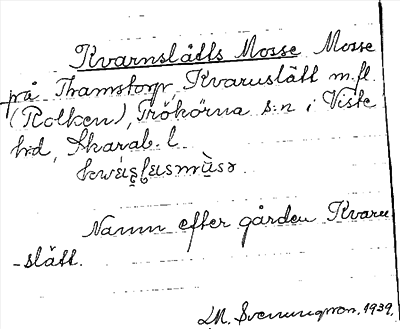 Kvarnslätts Mosse Mosse
på Thamstorp, Kvarnslätt m.fl.
(Rolken), Trökörna s:n i Viste
hd, Skarab. l.
Namn efter gården Kvarn
-slätt.
M. Svenungsson. 1939.